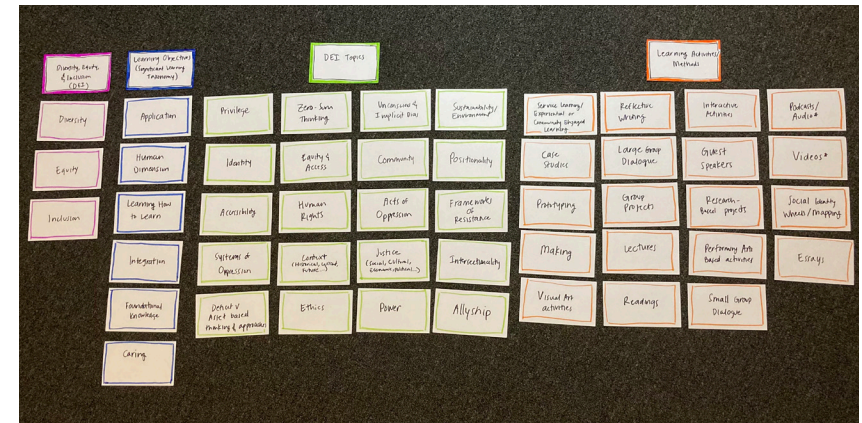 Diversity, Equity,
& Inclusion
(DEI)
Diversity
Equity
Inclusion
Learning Objectives
(Significant Learning
Taxonomy)
Application
Human
Dimension
Learning How
to Learn
Integration
Foundational
Knowledge
Caring
DEI Topics
Privilege
Identity
Accessibility
Systems of
Oppression
Deficit v
Asset based
thinking & approaches
Zero-Sum
Thinking
Equity &
Access
Human
Rights
Context
(Historical,
Future...)
Ethics
Unconscious &
Implicit Bias
Community
Acts of
Oppression
Justice
(Social, Cultural,
Economic,
Power
Sustainability/
Environment
Positionality
Frameworks
of
Resistance
Intersectionality
Allyship
Learning Activities/
Methods
Service Learning/
Experiential or
Community Engaged
Learning
Case
Studies
Prototyping
Making
Visual Art
activities
Reflective
Writing
Large Group
Dialogue
Group
Projects
Lectures
Readings
Interactive
Activities
Guest
Speakers
Research-
Based projects
Performing Arts
Based activities
Small Group
Dialogue
Podcasts/
Audio*
Videos*
Social Identity
Wheels/Mapping
Essays